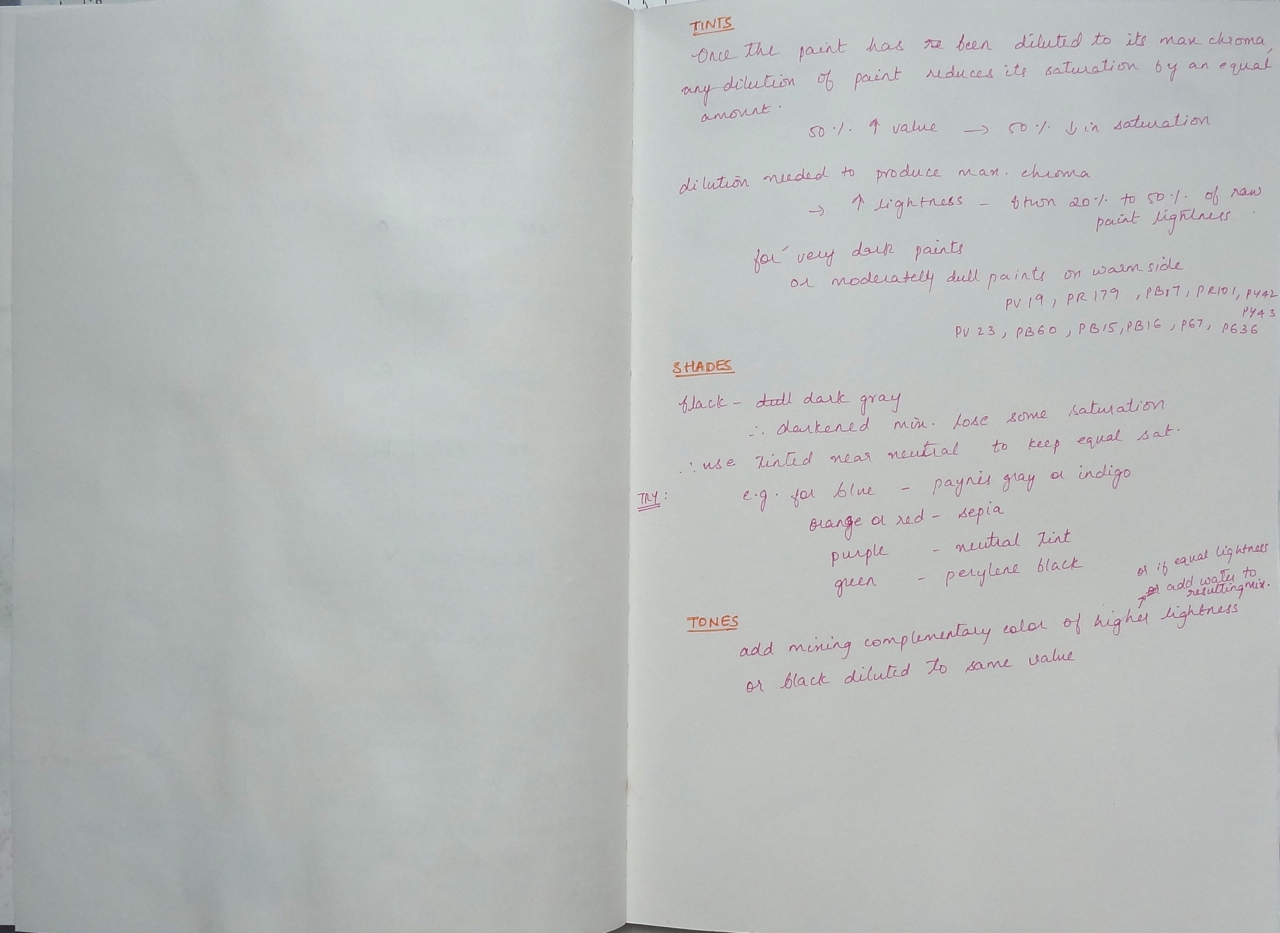 TINTS
Once the paint has re been diluted to its max chroma,
any dilution of paint reduces its saturation by an equal
amount.
50 % ↑ value → 50 % ↓ in saturation
dilution needed to produce max. chroma
→ ↑ lightness - btwn 20% to 50% of raw
paint lightness
for very dark paints
or moderately dull paints on warm side
PV 19, PR 179, PB17, PR101, PY42
PY43
PV 23, PB60, PB15, PB16, PG7, PG36
SHADES
black - dull dark gray
∴ darkened mix. lose some saturation
∴ use tinted near neutral to keep equal sat.
TRY: e.g. for blue - paynes gray or indigo
orange or red - sepia
purple - neutral tint
green - perylene black
or if equal lightness
or add water to
resulting mix.
TONES
add mixing complementary color of higher lightness
or black diluted to same value